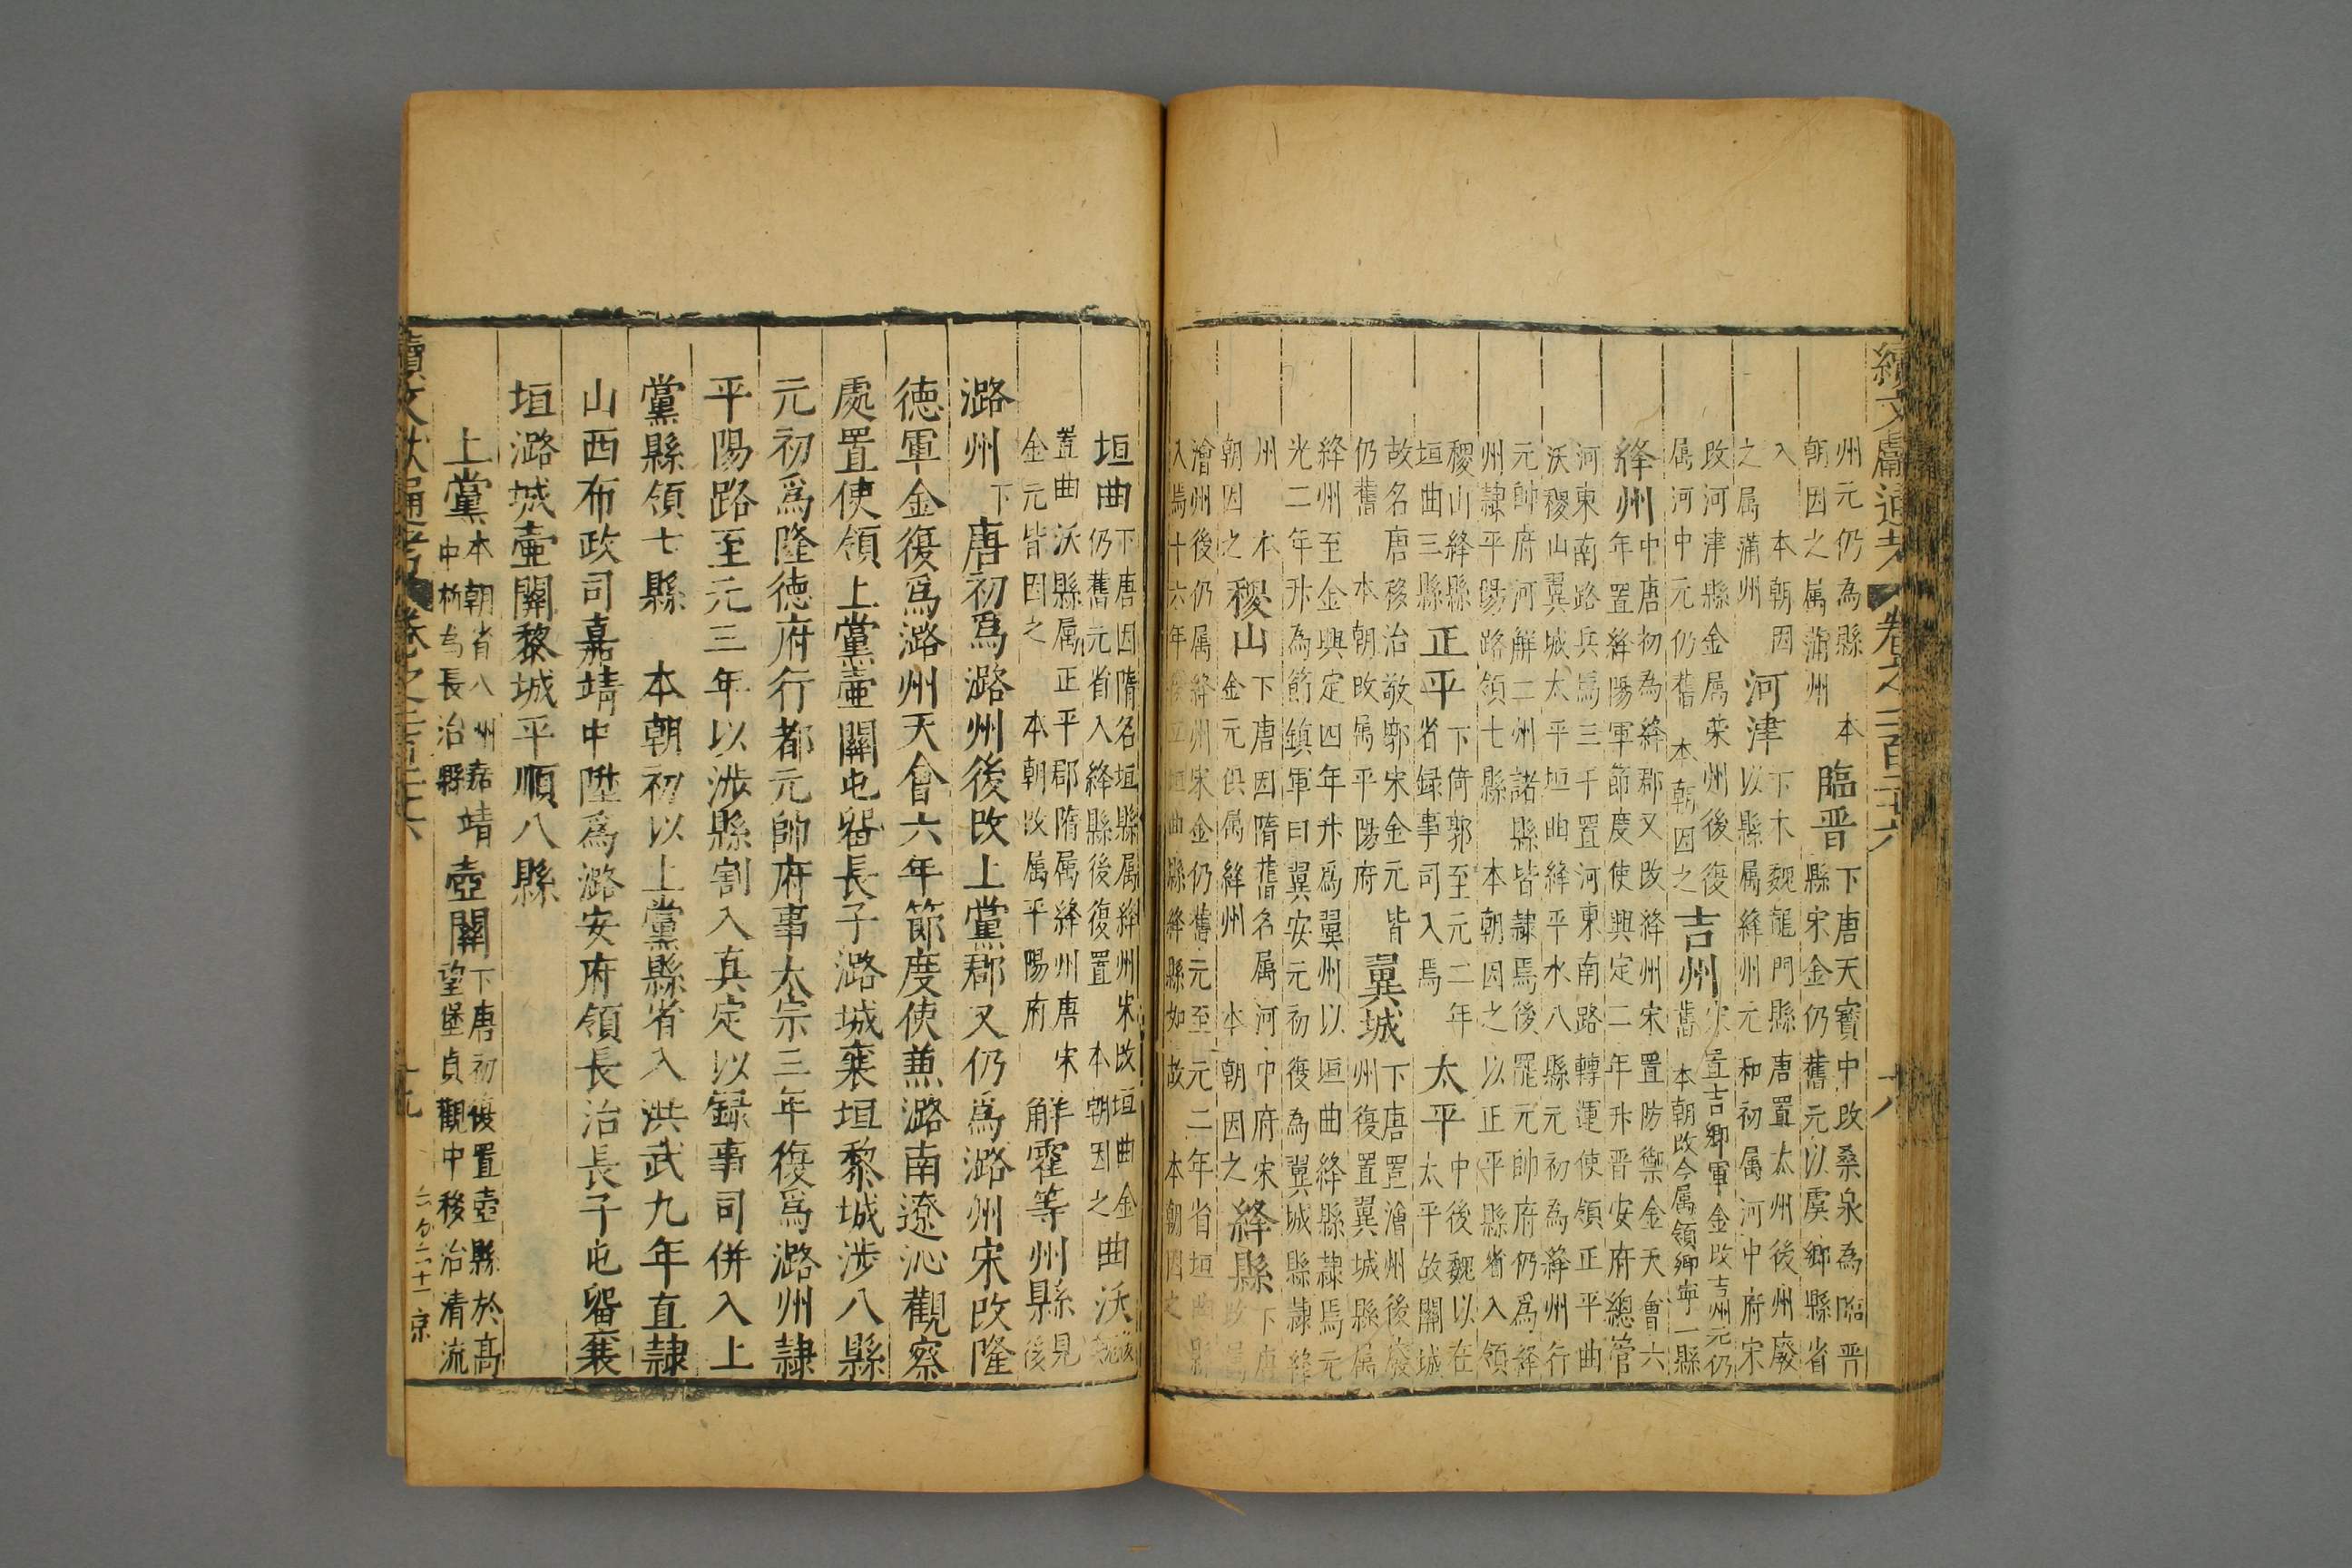 續文獻通考 卷之二百二十六 十八
州元仍為縣 本 臨晋 下唐天寶中改桑泉為臨晋
朝因之属蒲州 縣宋金仍舊元以虞鄉縣省
入 本朝因 河津 下本魏龍門縣唐置太州後州廢
之属蒲州 以縣属絳州元和初属河中府宋
改河津縣金属荣州後復 吉州 宋置吉鄉軍金改吉州元仍
属河中元仍舊 本朝因之 舊 本朝改今属領鄉寧一縣
絳州 中唐初為絳郡又改絳州宋置防禦金天會六
年置絳陽軍節度使興定二年升晋安府總管
河東南路兵馬三千置河東南路轉運使領正平曲
沃稷山翼城太平垣曲絳平水八縣元初為絳州行
元帥府河解二州諸縣皆隷焉後罷元帥府仍為絳
州隷平陽路領七縣 本朝因之以正平縣省入領
稷山絳縣 正平 下倚郭至元二年 太平 中後魏以在
垣曲三縣 省録事司入焉 太平故關城
故名唐移治敬郭宋金元皆 翼城 下唐置澮州後廢
仍舊 本朝改属平陽府 州復置翼城縣属
絳州至金興定四年升為翼州以垣曲絳縣隷焉元
光二年升為節鎮軍曰翼安元初復為翼城縣隷絳
州 本 稷山 下唐因隋舊名属河中府宋 絳縣 下唐
朝因之 金元俱属絳州 本朝因之
澮州後仍属絳州宋金仍舊元至元二年省垣曲縣
入焉十六年復立垣曲縣絳縣如故 本朝因之
垣曲 下唐因隋名垣縣属絳州宋改垣曲金 曲沃
仍舊元省入絳縣後復置 本朝因之
置曲沃縣属正平郡隋属絳州唐宋 解霍等州縣見
金元皆因之 本朝改属平陽府 後
潞州 下 唐初爲潞州後改上黨郡又仍爲潞州宋改隆
徳軍金復爲潞州天會六年節度使兼潞南遼沁觀察
處置使領上黨壷關屯留長子潞城襄垣黎城涉八縣
元初爲隆徳府行都元帥府事太宗三年復爲潞州隷
平陽路至元三年以涉縣割入真定以録事司併入上
黨縣領七縣 本朝初以上黨縣省入洪武九年直隷
山西布政司嘉靖中陞爲潞安府領長治長子屯留襄
垣潞城壷關黎城平順八縣
上黨 本朝省入州嘉靖 壷關 下唐初復置壷縣於高
中析為長治縣 望堡貞觀中移治清流
續文獻通考 卷之二百二十六 十九